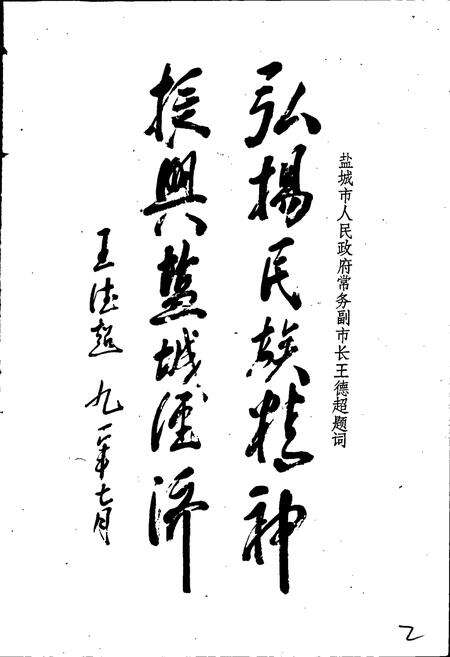 盐城市人民政府常务副市长王德超题词
弘揚民族精神
振興盐城经济
王德超 九一年七月
2